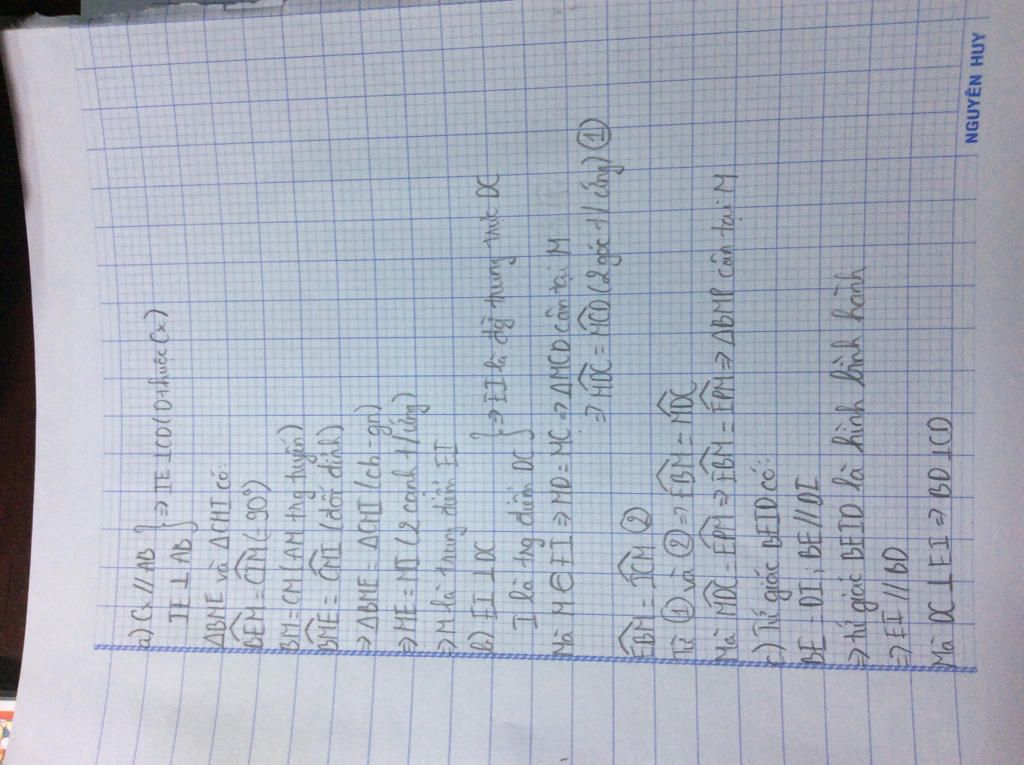 a) Cx // AB } => IE ⊥ CD (D thuộc Cx)
IE ⊥ AB
ΔBME và ΔCMI có:
BEM = CIM (= 90°)
BM = CM (AM trg tuyến)
BME = CMI (đối đỉnh)
=> ΔBME = ΔCMI (ch - gn)
=> ME = MI (2 cạnh t/ứng)
=> M là trung điểm EI
b) EI ⊥ DC
I là trg điểm DC } => EI là đg trung trực DC
Mà M ∈ EI => MD = MC => ΔMCD cân tại M
=> MDC = MCD (2 góc t/ứng) ①
EBM = ICM ②
Từ ① và ② => EBM = MDC
Mà MDC = EPM => EBM = EPM => ΔBMP cân tại M
c) Tứ giác BEID có:
BE = DI ; BE // DI
=> tứ giác BEID là hình bình hành
=> EI // BD
Mà DC ⊥ EI => BD ⊥ CD
NGUYÊN HUY